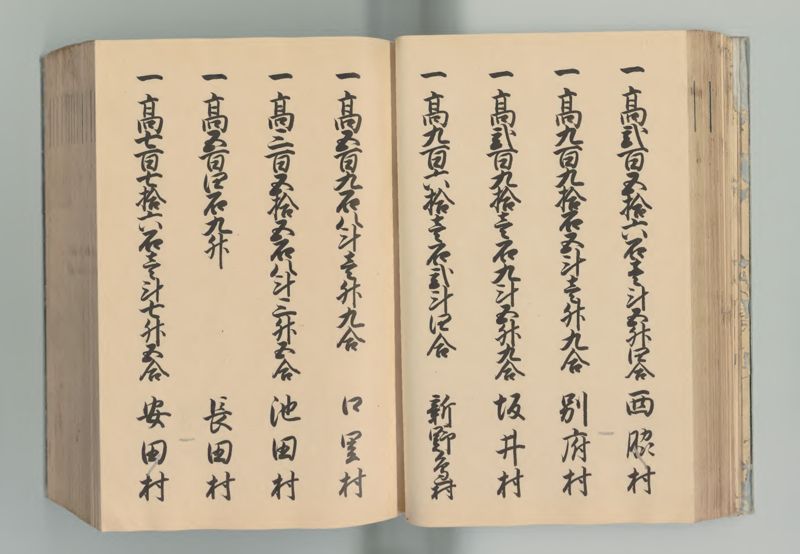 一 高弐百五拾六石壱斗五升四合 西脇村
一 高九百九拾石五斗壱升九合 別府村
一 高弐百九拾壱石九斗五升九合 坂井村
一 高九百六拾壱石弐斗四合 新野邉村
一 高五百九石八斗壱升九合 口里村
一 高二百五拾五石八斗二升五合 池田村
一 高五百四石九升 長田村
一 高七百七拾六石壱斗七升五合 安田村